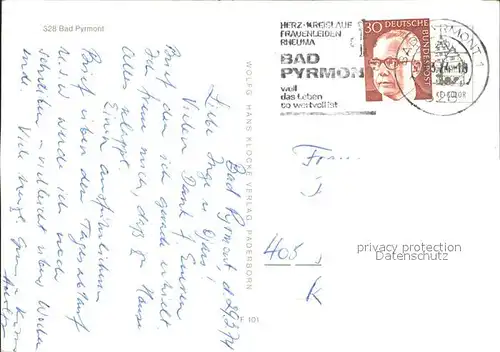 328 Bad Pyrmont
HERZ-KREISLAUF
FRAUENLEIDEN
RHEUMA
BAD
PYRMONT
weil
das Leben
so wertvoll ist
30 DEUTSCHE
BUNDESPOST
BAD PYRMONT 1
328
WOLFG. HANS KLOCKE VERLAG, PADERBORN
Bad Pyrmont, d. 29.3.74
Liebe Inge u.
Vielen Dank f. Euren
Brief den ich gerade erhielt.
Ich freue mich, daß zu Hause
alles klappt.
Einen ausführlichen
Brief über den Tagesablauf
u.s.w. werde ich noch
schreiben - vielleicht übers Wochen
ende. Viele herzl. Grüße
Frau
405
K
privacy protection
watermark
F 101